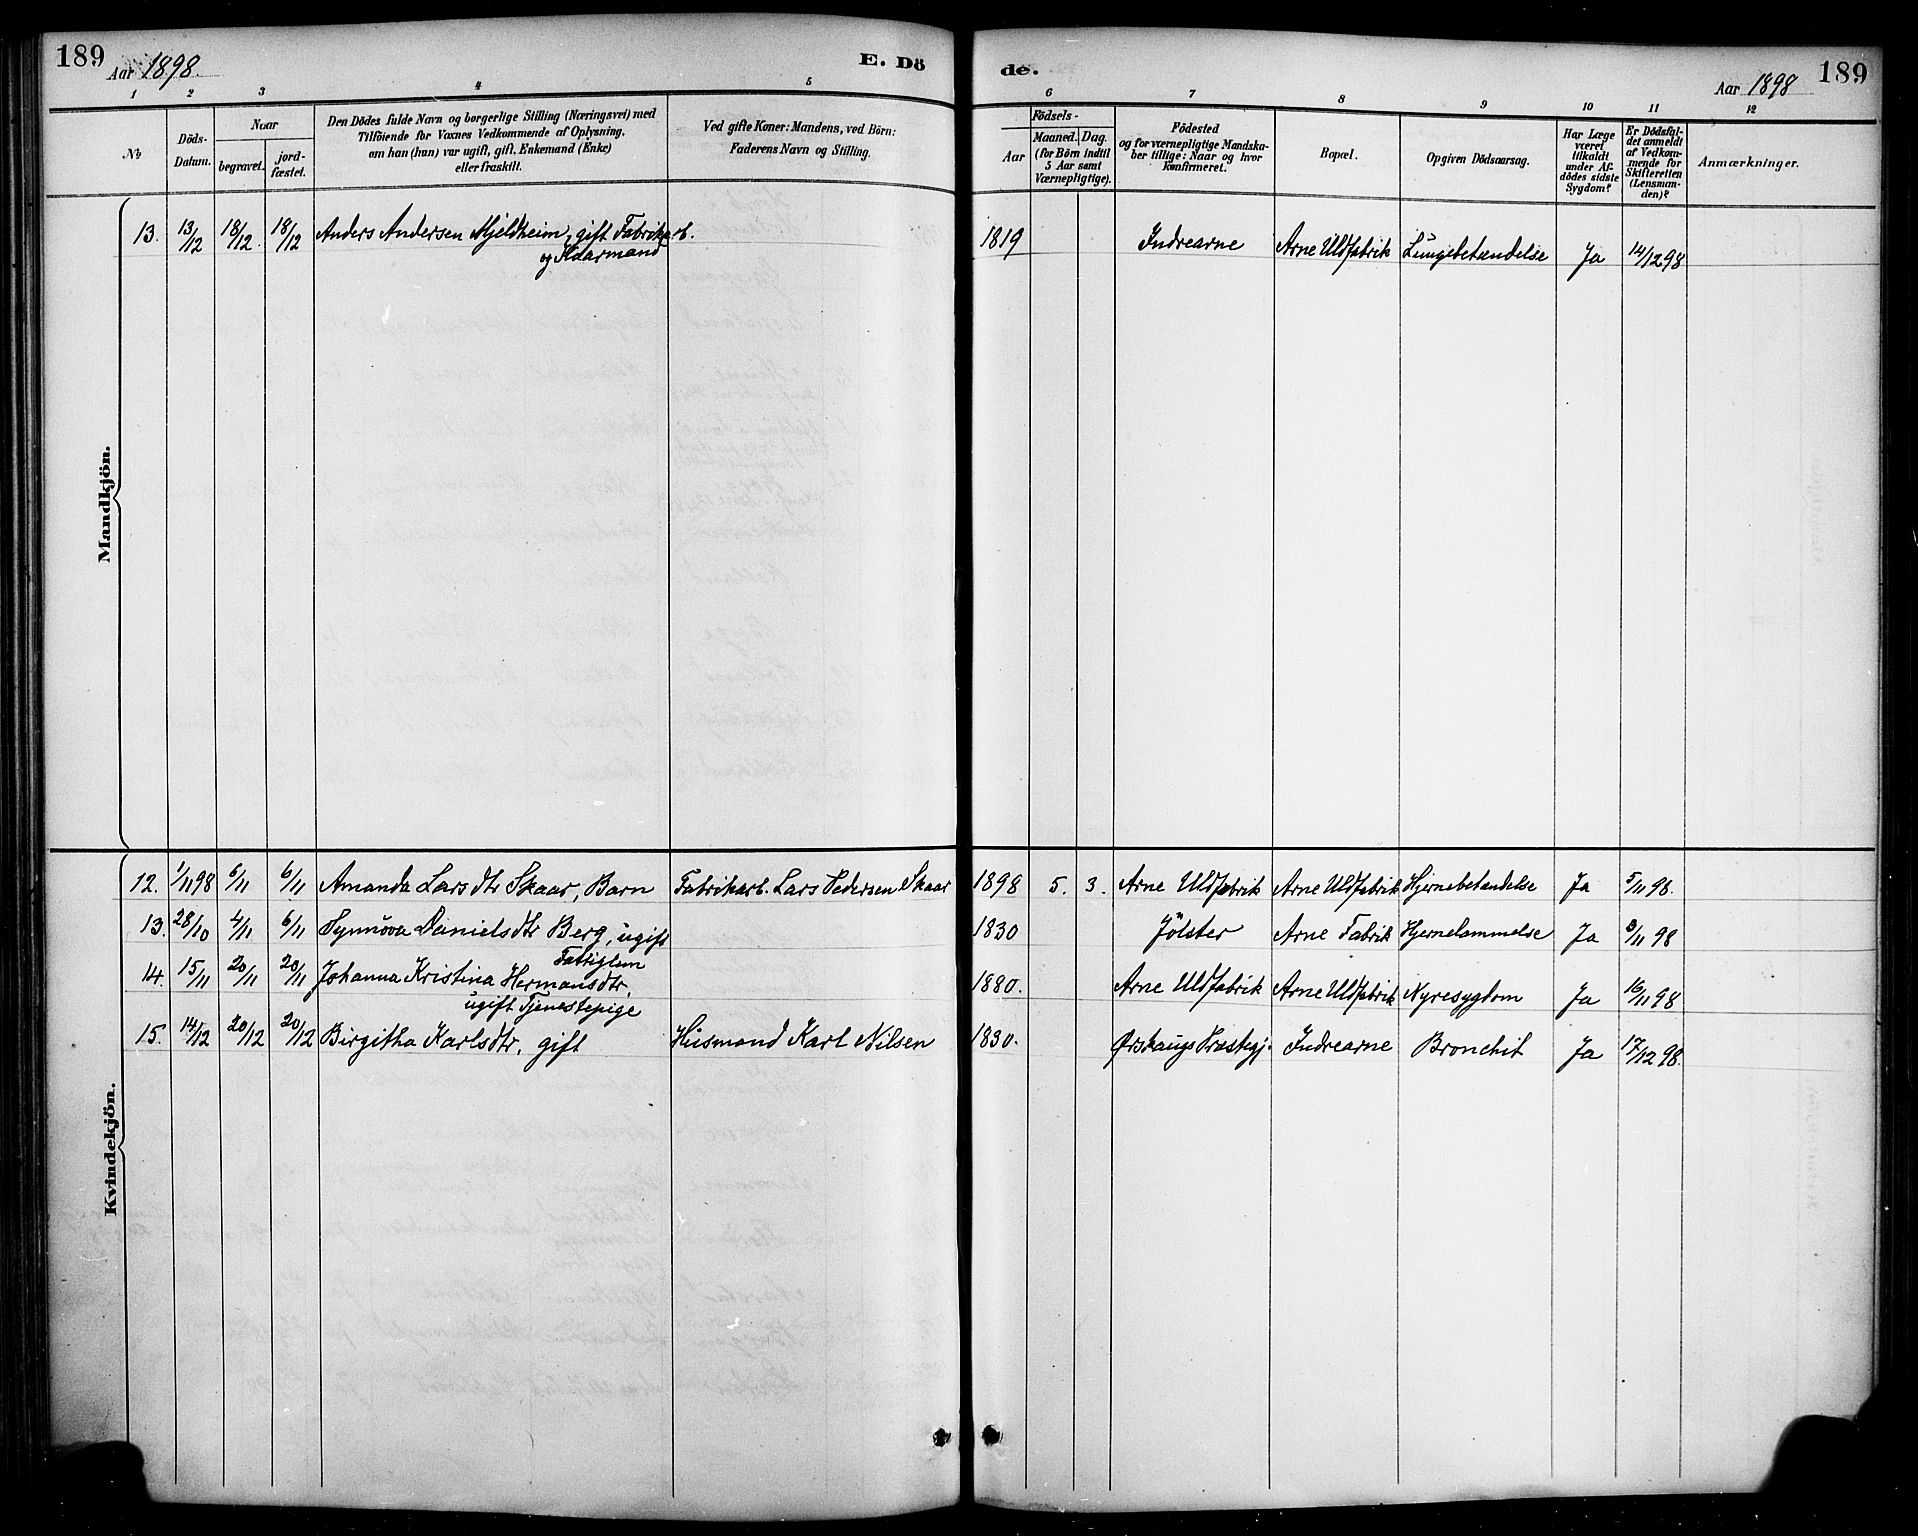 189 Aar 1898. E. Dö de. Aar 1898 189
1 2 3 4 5 6 7 8 9 10 11 12
No
Döds-Datum.
Naar
begravet. jordfæstet.
Den Dödes fulde Navn og borgerlige Stilling (Næringsvei) med
Tilföiende for Voxnes Vedkommende af Oplysning,
om han (hun) var ugift, gift, Enkemand (Enke)
eller fraskilt.
Ved gifte Koner: Mandens, ved Börn:
Faderens Navn og Stilling.
Födsels-
Aar
Maaned. Dag.
(for Börn indtil
5 Aar samt
Værnepligtige).
Födested
og for værnepligtige Mandska-
ber tillige: Naar og hvor
konfirmeret.
Bopæl.
Opgiven Dödsaarsag.
Har Læge
været
tilkaldt
under Af-
dödes sidste
Sygdom?
Er Dödsfal-
det anmeldt
af Vedkom-
mende for
Skifteretten
(Lensman-
den)?
Anmærkninger.
Mandkjön.
13. 13/12 18/12. 18/12 Anders Andersen Mjeldheim, gift Fabrikarb. 1819 Indrearne Arne Uldfabrik Lungebetændelse Ja 14/12 98
og Kaarmand
Kvindekjön.
12. 1/11 98 6/11 6/11 Amanda Larsdtr Skaar, Barn Fabrikarb. Lars Pedersen Skaar 1898 5. 3. Arne Uldfabrik Arne Uldfabrik Hjernebetændelse Ja 5/11 98.
13. 28/10 4/11 6/11 Synnöva Danielsdtr Berg, ugift 1830 Jölster Arne Fabrik Hjernelammelse Ja 3/11 98
Fattiglem
14. 15/11 20/11 20/11 Johanna Kristina Hermansdtr, 1880. Arne Uldfabrik Arne Uldfabrik Nyresygdom Ja 16/11 98
ugift Tjenestepige
15. 14/12 20/12 20/12 Birgitha Karlsdtr, gift Husmand Karl Nilsen 1830. Ørskaugs Præstegj. Indrearne Bronchit Ja 17/12 98.